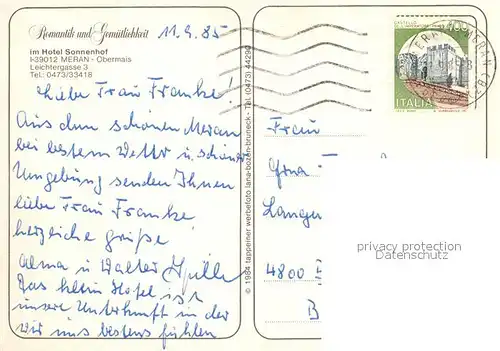 Romantik und Gemütlichkeit
11.9.85
im Hotel Sonnenhof
I-39012 MERAN - Obermais
Leichtergasse 3
Tel.: 0473/33418
Liebe Frau Franke!
Aus dem schönen Meran
bei bestem Wetter u. schöner
Umgebung senden Ihnen
liebe Frau Franke
herzliche Grüße
Alma u Walter
Das kleine Hotel ist
unsere Unterkunft in der
wir uns bestens fühlen
© 1984 tappeiner werbefoto lana-bozen-bruneck - Tel. (0473) 44290
ITALIA
Frau
Langen
4800
B
privacy protection
Datenschutz